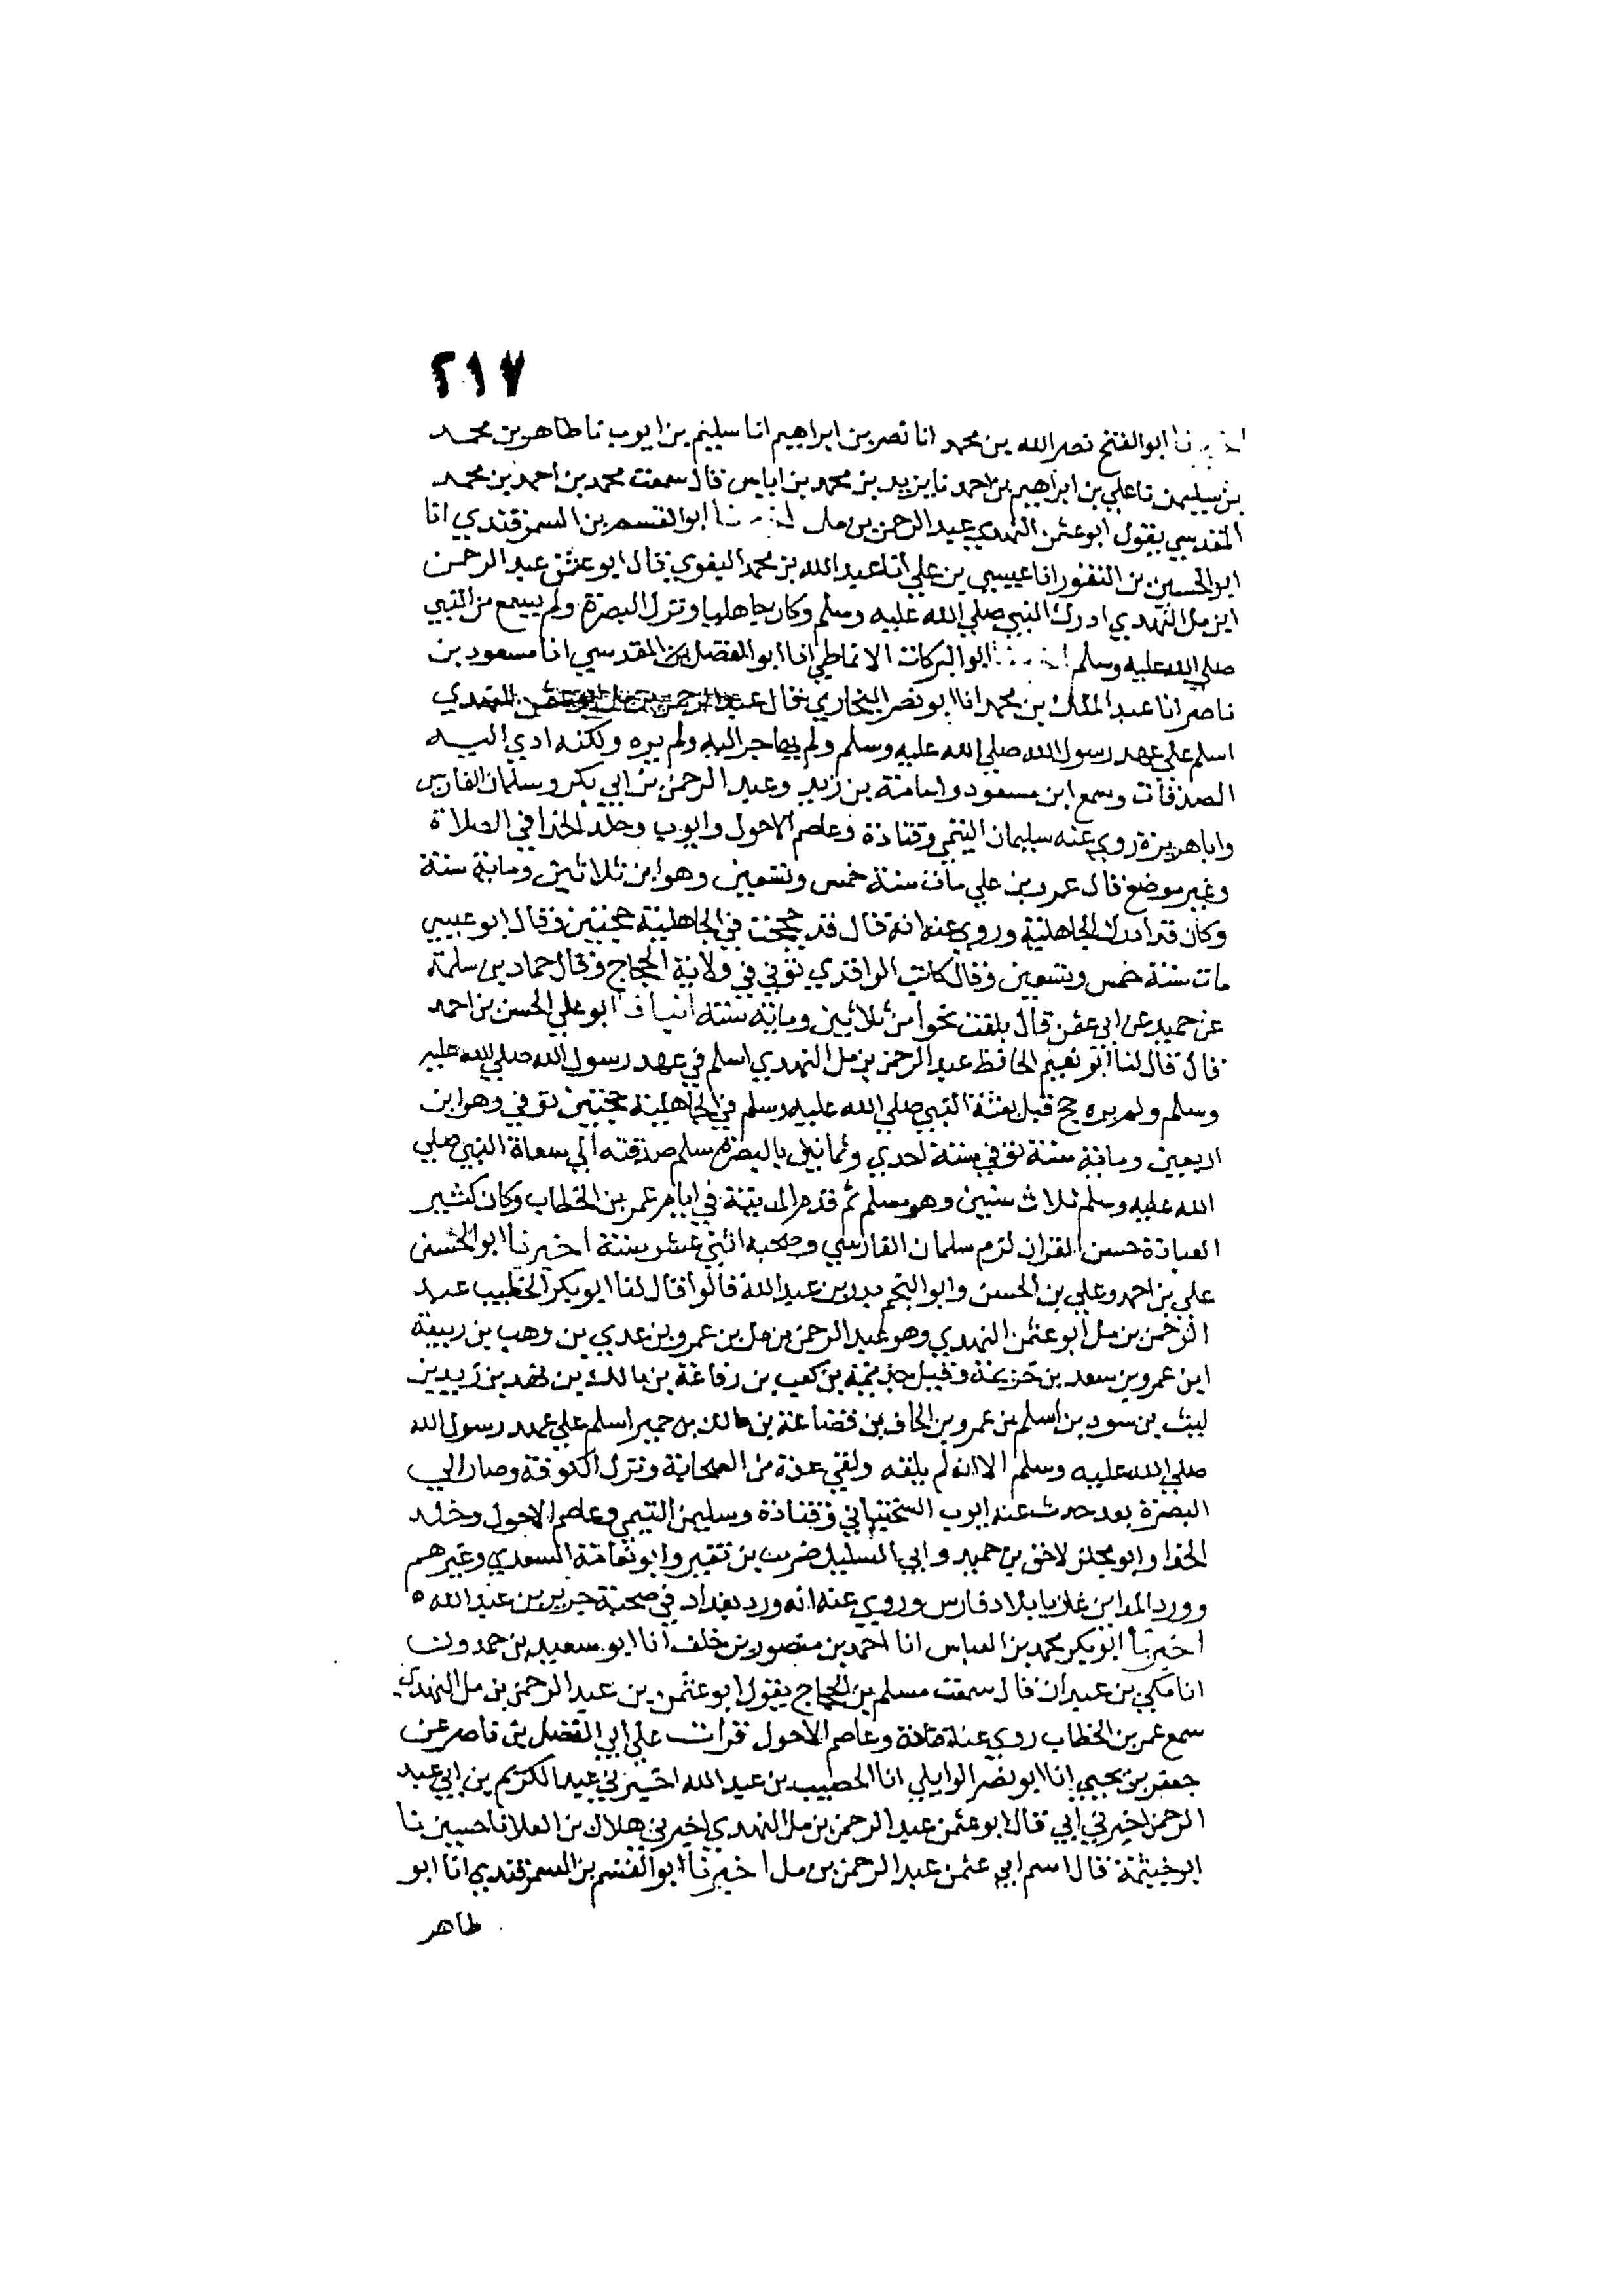 ٢١٧
اخبرنا ابو الفتح نصر الله بن محمد انا نصر بن ابراهيم انا سليم بن ايوب نا طاهر بن محمد
بن سليمن نا علي بن ابراهيم بن احمد نا يزيد بن محمد بن اياس قال سمعت محمد بن احمد بن محمد
المقدسي يقول ابو عثمن النهدي عبد الرحمن بن مل اخبرنا ابو القسم بن السمرقندي انا
ابو الحسين بن النقور انا عيسي بن علي انا عبد الله بن محمد البغوي قال ابو عثمن عبد الرحمن
ابن مل النهدي ادرك النبي صلي الله عليه وسلم وكان جاهليا ونزل البصرة ولم يسمع من النبي
صلي الله عليه وسلم اخبرنا ابو البركات الانماطي انا ابو الفضل بن المقدسي انا مسعود بن
ناصر انا عبد الملك بن محمد انا ابو نصر البخاري قال عبد الرحمن بن مل ابو عثمن النهدي
اسلم علي عهد رسول الله صلي الله عليه وسلم ولم يهاجر اليه ولم يره ولكنه ادي اليه
الصدقات وسمع ابن مسعود واسامة بن زيد وعبد الرحمن بن ابي بكر وسلمان الفارسي
واباهريرة روي عنه سليمان التيمي وقتادة وعاصم الاحول وايوب وخلد الحذا في الصلاة
وغير موضع قال عمرو بن علي مات سنة خمس وتسعين وهو ابن ثلاثين ومائة سنة
وكان قد ادرك الجاهلية وروي عنه انه قال قد حججت في الجاهلية حجتين وقال ابو عيسي
مات سنة خمس وتسعين وقال كاتب الواقدي توفي في ولاية الحجاج وقال حماد بن سلمة
عن حميد عن ابي عثمن قال بلغت نحوا من ثلاثين ومائة سنة انبانا ابو علي الحسن بن احمد
قال قال لنا ابو نعيم الحافظ عبد الرحمن بن مل النهدي اسلم في عهد رسول الله صلي الله عليه
وسلم ولم يره حج قبل بعثة النبي صلي الله عليه وسلم في الجاهلية حجتين توفي وهو ابن
اربعين ومائة سنة توفي سنة احدي وثمانين بالبصرة سلم صدقته الي سعاة النبي صلي
الله عليه وسلم ثلاث سنين وهو مسلم ثم قدم المدينة في ايام عمر بن الخطاب وكان كثير
العبادة حسن القران لزم سلمان الفارسي وصحبه اثني عشر سنة اخبرنا ابو الحسن
علي بن احمد وعلي بن الحسن وابو النجم بدر بن عبد الله قالوا قال لنا ابو بكر الخطيب عبد
الرحمن بن مل ابو عثمن النهدي وهو عبد الرحمن بن مل بن عمرو بن عدي بن وهب بن ربيعة
ابن عمرو بن سعد بن خزيمة وقيل جذيمة بن كعب بن رفاعة بن مالك بن نهد بن زيد بن
ليث بن سود بن اسلم بن عمرو بن الحاف بن قضاعة بن مالك بن حمير اسلم علي عهد رسول الله
صلي الله عليه وسلم الا انه لم يلقه ولقي عدة من الصحابة ونزل الكوفة وصار الي
البصرة بعد حدث عنه ايوب السختياني وقتادة وسليمن التيمي وعاصم الاحول وخلد
الحذا وابو مجلز لاحق بن حميد وابي السليل ضريب بن نقير وابو نعامة السعدي وغيرهم
وورد المداين غازيا بلاد فارس وروي عنه انه ورد بغداد في صحبة جرير بن عبد الله ٥
اخبرنا ابو بكر محمد بن العباس انا احمد بن منصور بن خلف انا ابو سعيد بن حمدون
انا مكي بن عبدان قال سمعت مسلم بن الحجاج يقول ابو عثمن بن عبد الرحمن بن مل النهدي
سمع عمر بن الخطاب روي عنه قتادة وعاصم الاحول قرات علي ابي الفضل بن ناصر عن
جعفر بن يحيي انا ابو نصر الوايلي انا الخصيب بن عبد الله اخبرني عبد الكريم بن ابي عبد
الرحمن اخبرني ابي قال ابو عثمن عبد الرحمن بن مل النهدي اخبرني هلال بن العلا نا حسين نا
ابو خيثمة قال اسم ابي عثمن عبد الرحمن بن مل اخبرنا ابو القسم بن السمرقندي انا ابو
طاهر